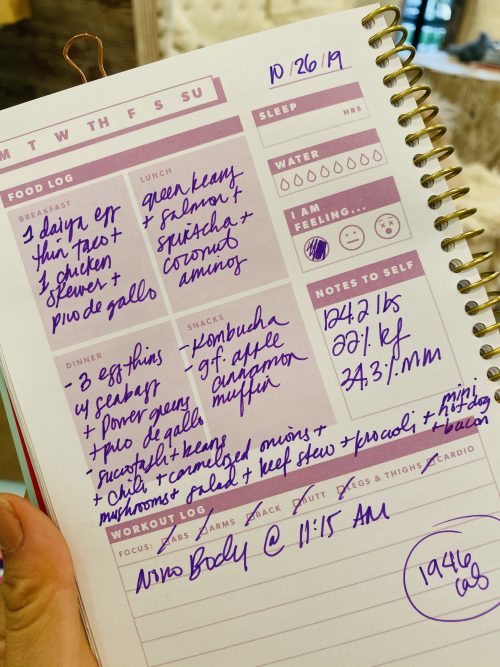 10/26/19
M T W TH F S SU
SLEEP
HRS
WATER
I AM FEELING...
NOTES TO SELF
124.2 lbs
22% bf
34.3% MM
FOOD LOG
BREAKFAST
1 daiya egg
thin taco +
1 chicken
skewer +
pico de gallo
LUNCH
green beans
+ salmon +
spinach +
coconut
aminos
DINNER
- 3 egg thins
w/ seabass
+ power greens
+ pico de gallo
- succotash + beans
+ chili + carmelized onions +
mushrooms + salad + beef stew + brocoli + mini
hot dog
+ bacon
SNACKS
- Kombucha
- gf. apple
cinnamon
muffin
WORKOUT LOG
FOCUS: ABS ARMS BACK BUTT LEGS & THIGHS CARDIO
Niko Body @ 11:15 AM
1946
cals